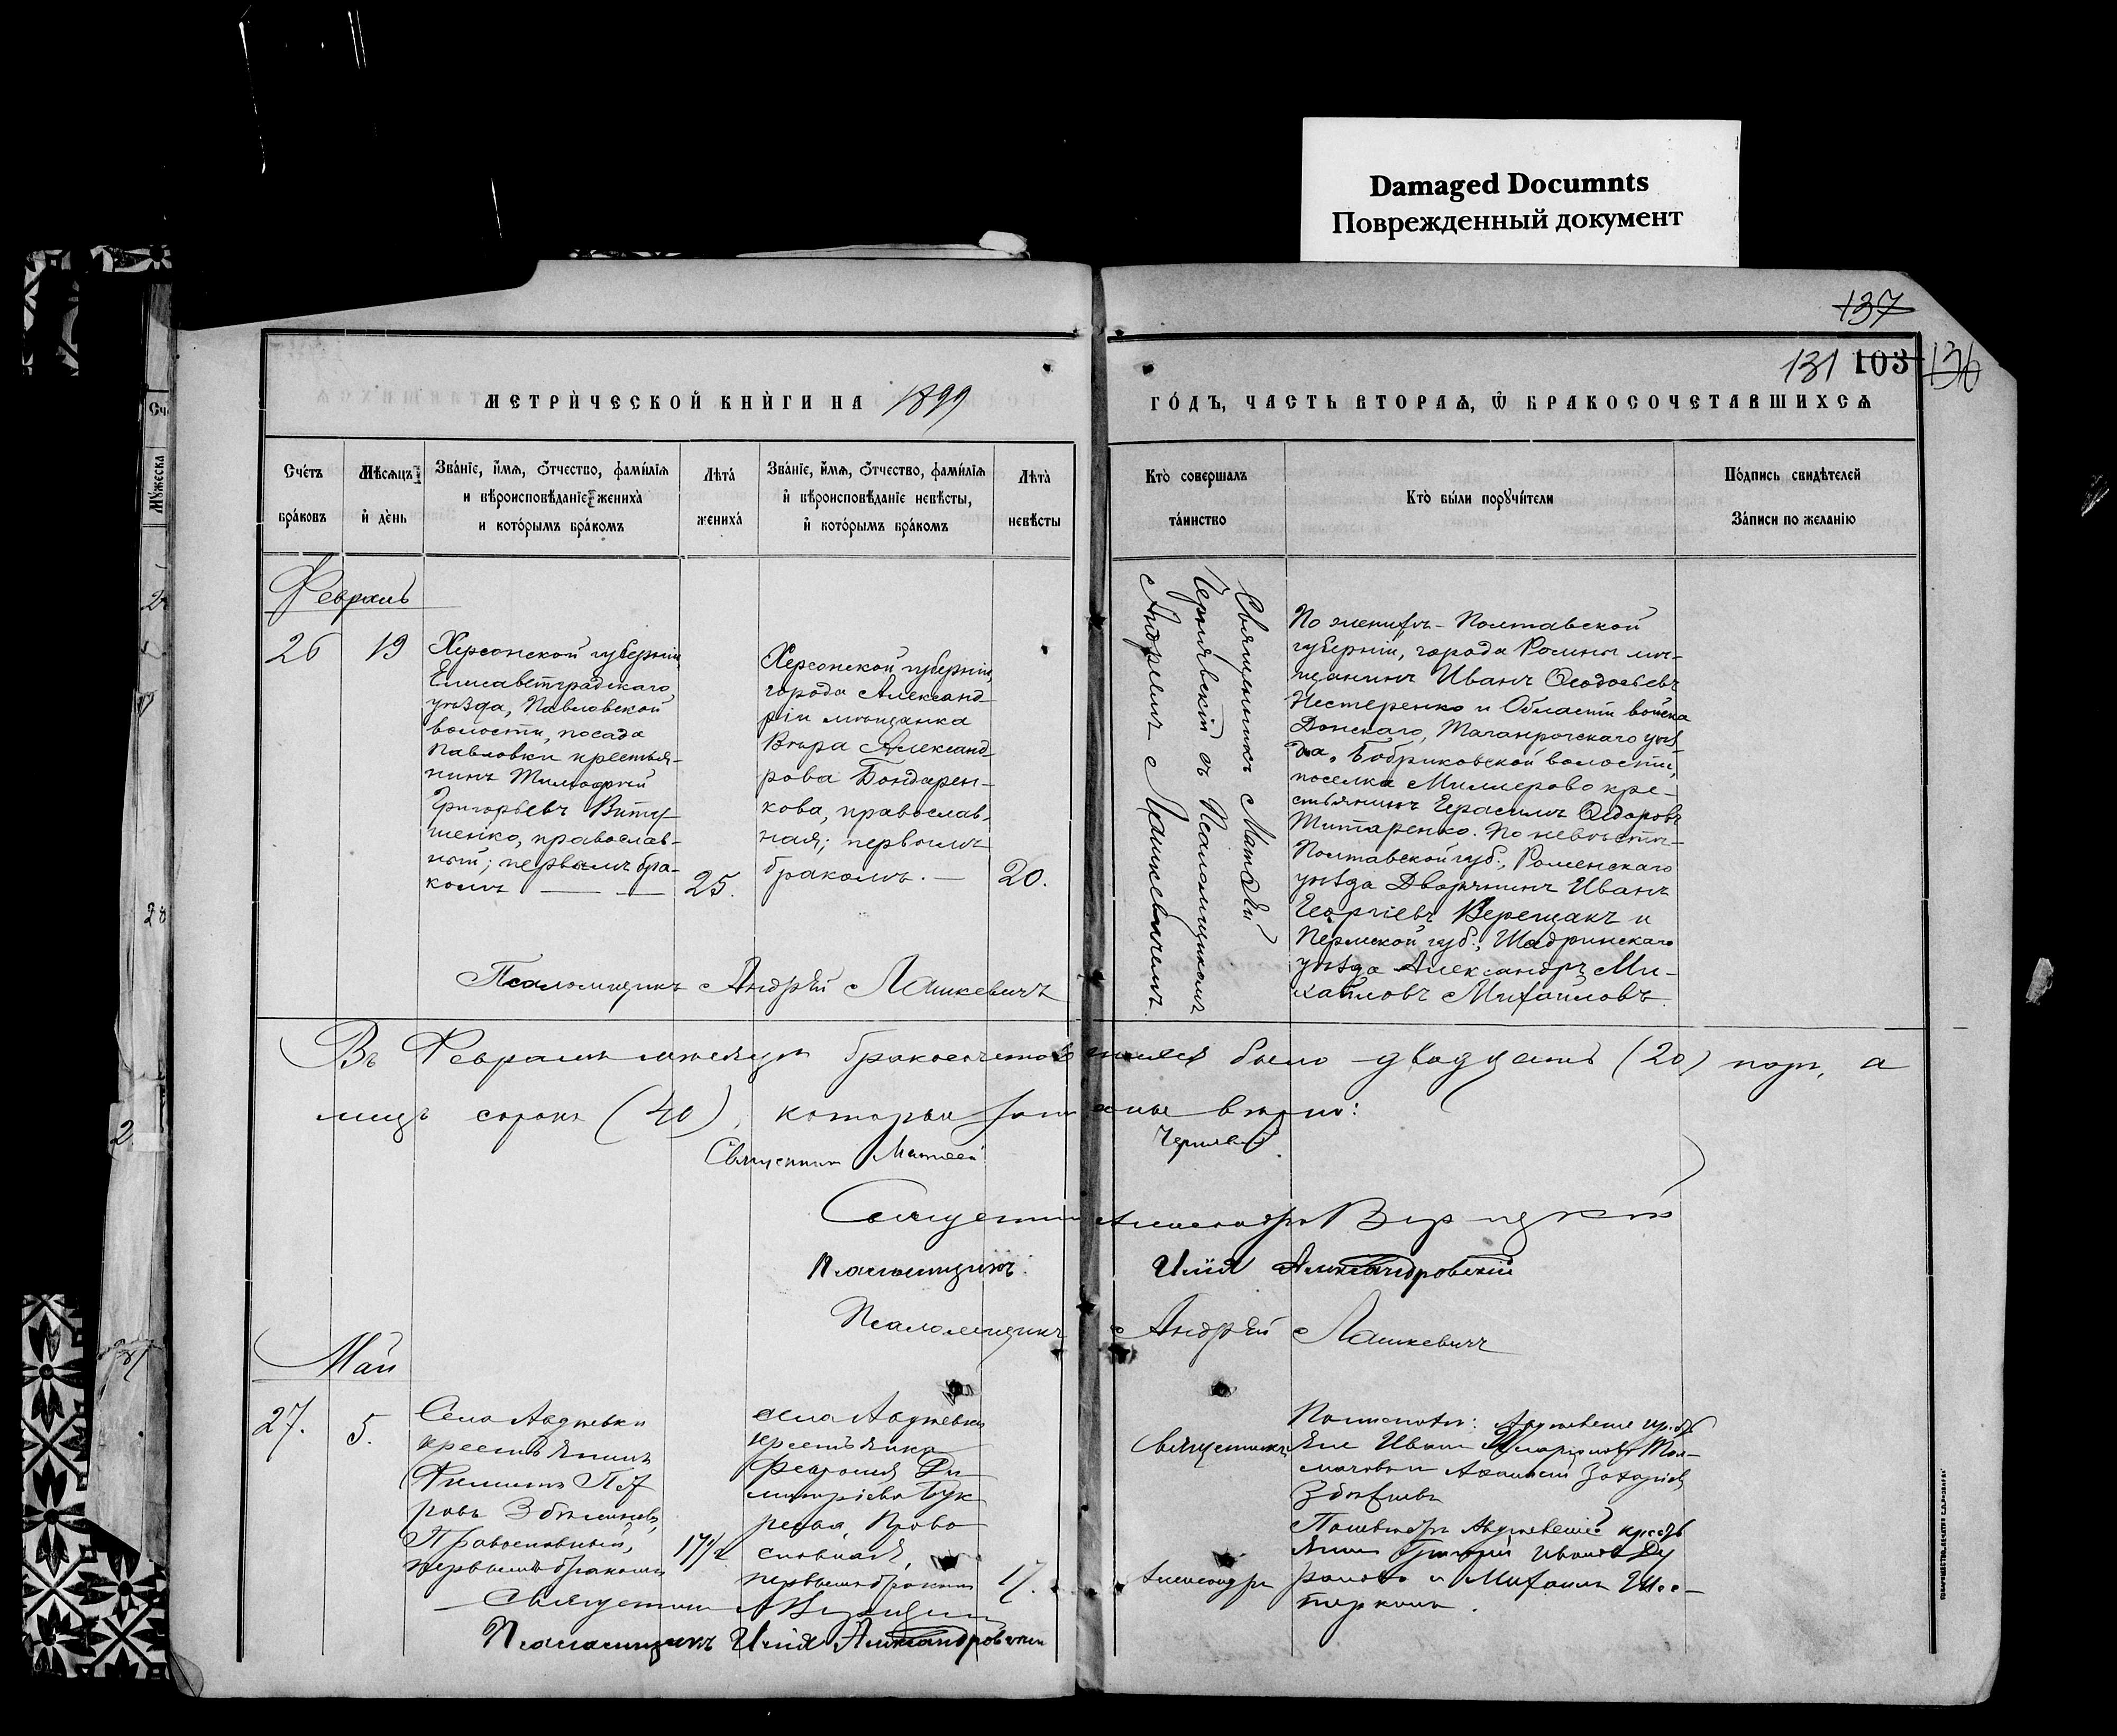 Damaged Documnts
Поврежденный документ
137
131 103 136
МЕТРИ́ЧЕСКОЙ КНИ́ГИ НА 1899
ГО́ДЪ, ЧАСТЬ ВТОРАѦ, Ѿ БРАКОСОЧЕТАВШИХСѦ
Сче́тъ бра́ковъ
Мѣ́сѧцъ и҆ де́нь
Зва́нїе, и҆́мѧ, ѻ҆́тчество, фами́лїѧ
и вѣроисповѣ́данїе жениха̀
и кото́рымъ бра́комъ
Лѣта̀
жениха̀
Зва́нїе, и҆́мѧ, ѻ҆́тчество, фами́лїѧ
и҆ вѣроисповѣ́данїе невѣ́сты,
и҆ кото́рымъ бра́комъ
Лѣта̀
невѣ́сты
Кто̀ соверша́лъ
та́инство
Кто̀ бы́ли порꙋчи́тели
По́дпись свидѣ́телей
За́писи по жела́нїю
Февраль
26
19
Херсонской губерніи
Елисаветградскаго
уѣзда, Павловской
волости, посада
Павловки крестья-
нинъ Тимофей
Григорьевъ Виту-
шенко, православ-
ный; первымъ бра-
комъ
25.
Херсонской губерніи,
города Александ-
ріи мѣщанка
Вѣра Александ-
рова Бондарен-
кова, православ-
ная; первымъ
бракомъ.
20.
Священникъ Матѳей
Чернявскій съ Псаломщикомъ
Андреемъ Лашкевичемъ
По женихѣ - Полтавской
губерніи, города Ромны мѣ-
щанинъ Иванъ Ѳеодосьевъ
Нестеренко и Области войска
Донскаго, Таганрогскаго уѣз-
да, Бобриковской волости,
поселка Миллерово кре-
стьянинъ Герасимъ Ѳедоровъ
Титаренко. По невѣстѣ -
Полтавской губ., Роменскаго
уѣзда Дворянинъ Иванъ
Георгіевъ Верещакъ и
Пермской губ., Шадринскаго
уѣзда Александръ Ми-
хайловъ Михайловъ.
Псаломщикъ Андрей Лашкевичъ
Въ Февралѣ мѣсяцѣ бракосочетавшихся было двадцать (20) паръ, а
лицъ сорокъ (40), которыя записаны вѣрно:
Священникъ Матѳей Чернявскій
Священникъ Александръ
Псаломщикъ Илія Александровскій
Псаломщикъ Андрей Лашкевичъ
Май
27.
5.
Села Авдѣевки
крестьянинъ
Филиппъ Пет
ровъ
Православный,
первымъ бракомъ
17½
села Авдѣевки
крестьянка
Ди
митріева
Право
славная,
первымъ бракомъ
17.
Священникъ
Александръ
По женихѣ:
Иванъ
Захаріевъ
По невѣстѣ
Григорій Ивановъ
и Михаилъ Шес-
теркинъ.
Священникъ
Псаломщикъ Илія Александровскій